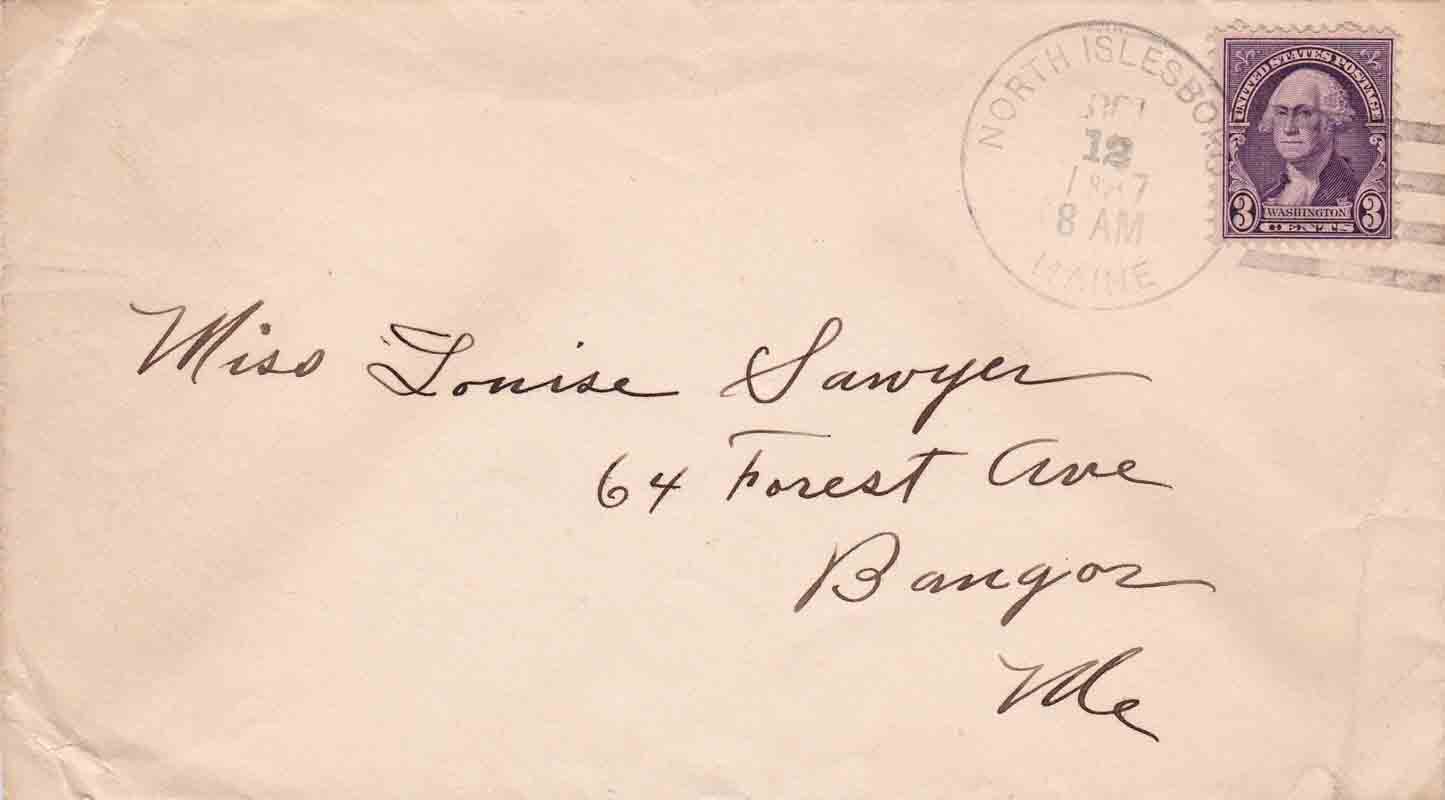 NORTH ISLESBORO
12
8 AM
MAINE
UNITED STATES POSTAGE
3 WASHINGTON 3
CENTS
Miss Louise Sawyer
64 Forest Ave
Bangor
Me